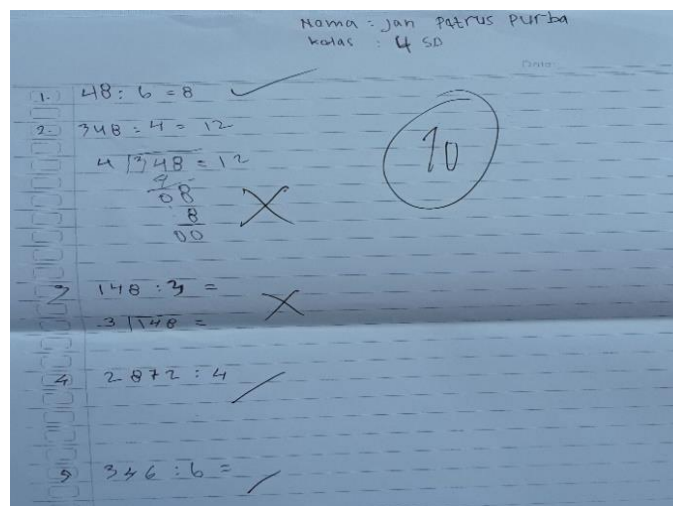 Nama : Jan Patrus Purba
Kalas : 4 SD
1. 48 : 6 = 8
2. 348 : 4 = 12
4 348 = 12
4
08
8
00
10
3 148 : 3 =
3 148 =
4 2872 : 4
5 346 : 6 =